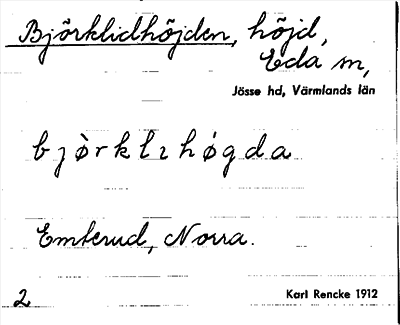 Björklidhöjden, höjd,
Eda sn,
Jösse hd, Värmlands län
bjö̀rklιhǿgda
Emterud, Norra.
2
Karl Rencke 1912